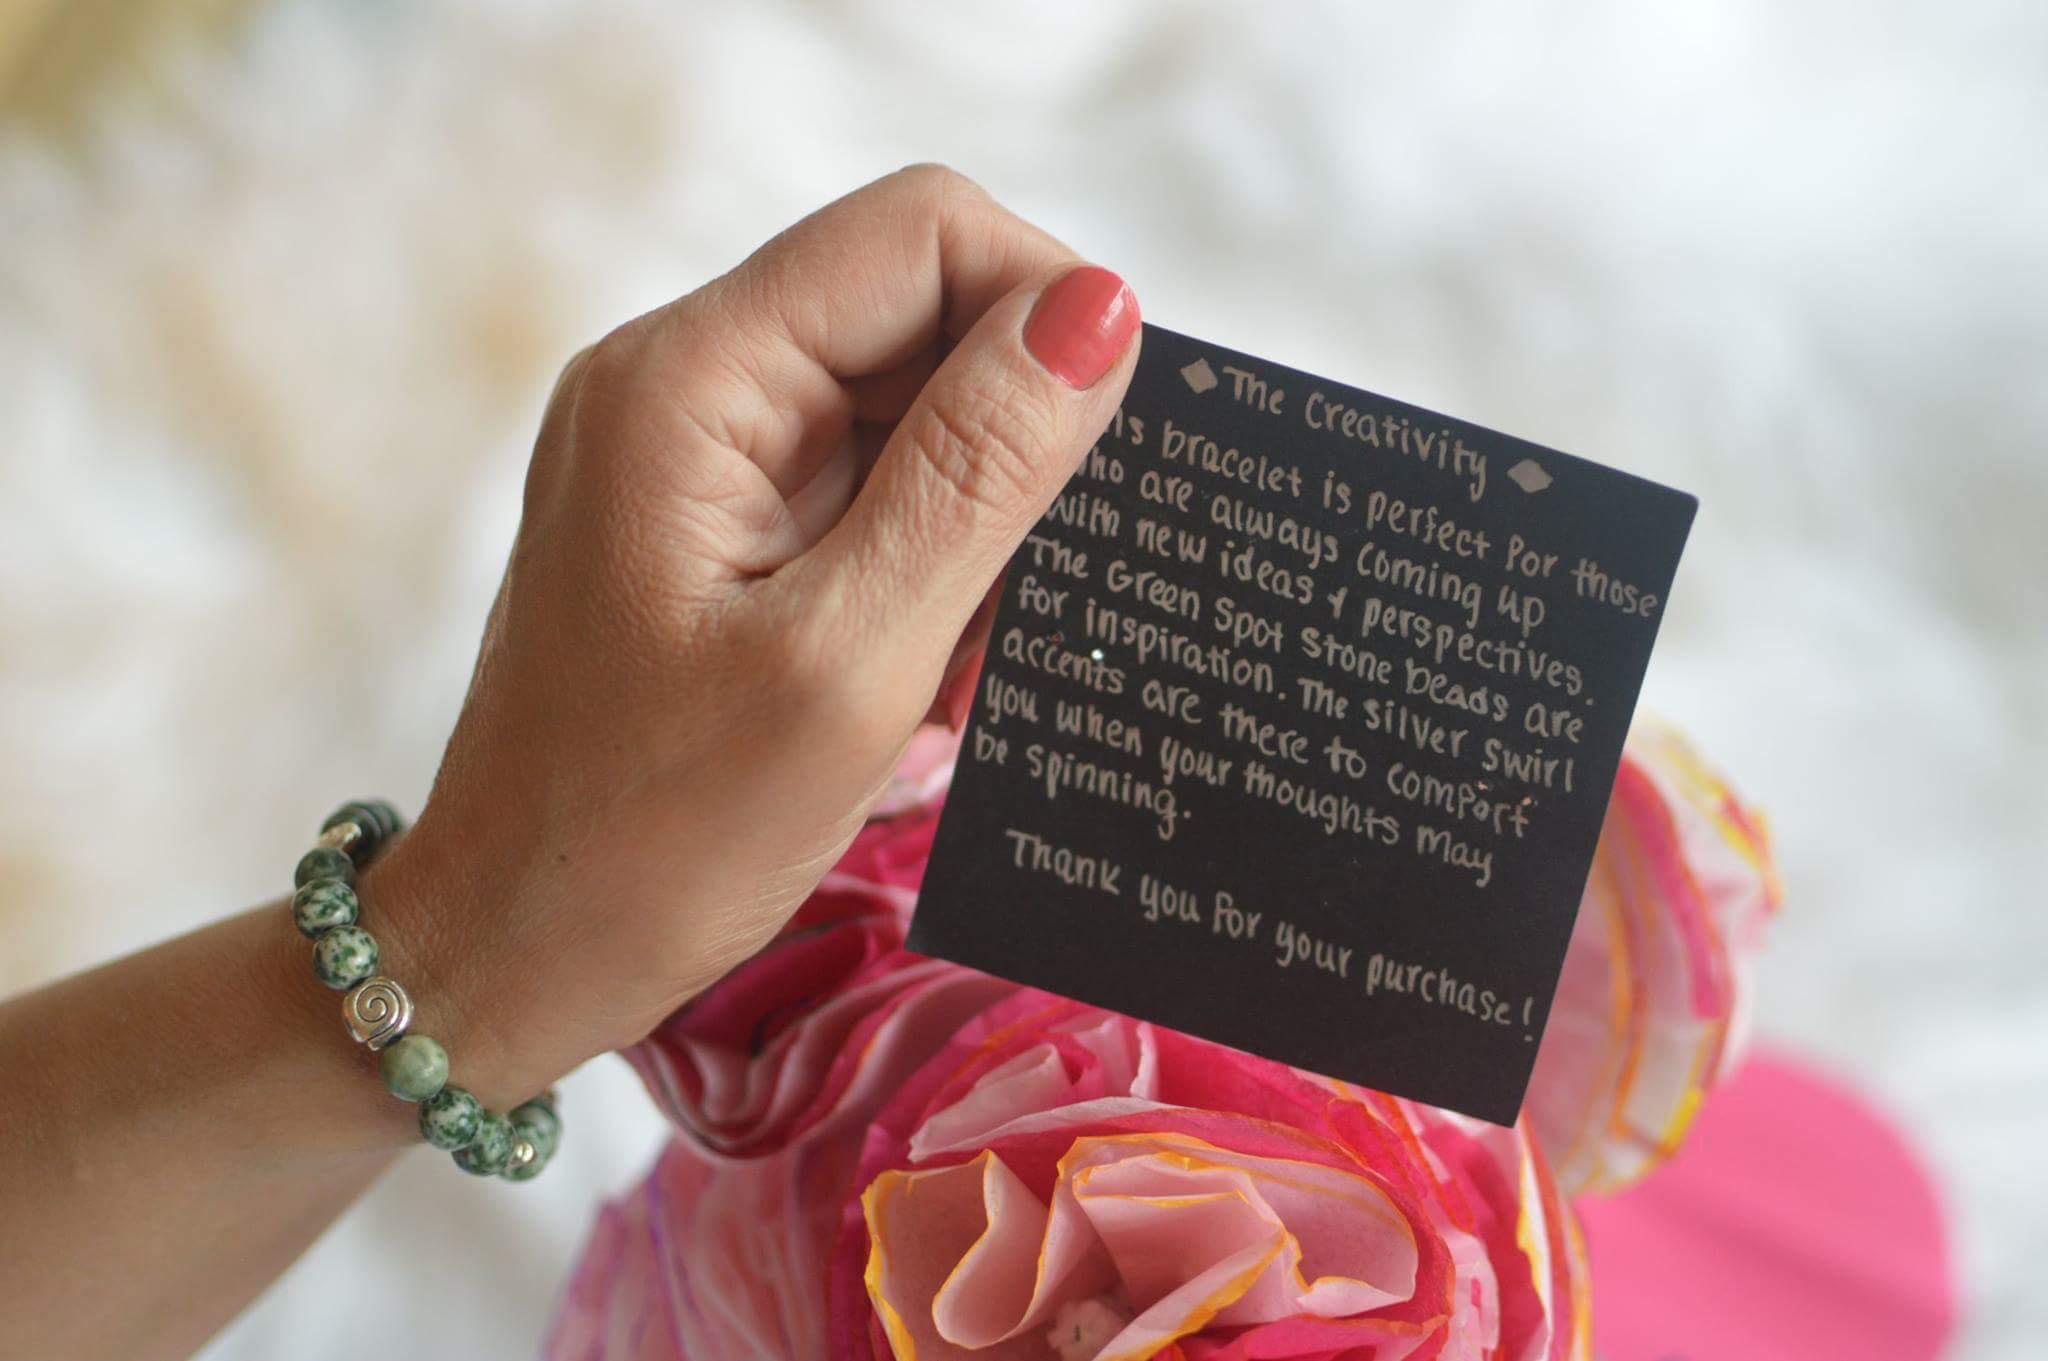 ◆ The Creativity ◆
is bracelet is perfect for those
who are always coming up
with new ideas & perspectives.
The Green Spot Stone beads are
for inspiration. The silver swirl
accents are there to comfort
you when your thoughts may
be spinning.
Thank you for your purchase!